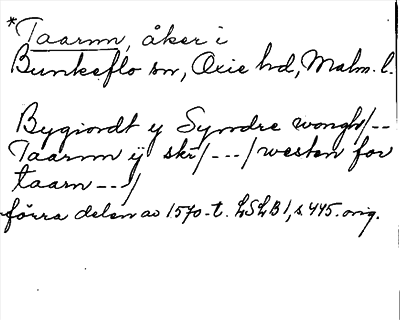 *Taarnn, åker i
Bunkeflo sn, Oxie hd, Malm. l.
Bygiordt y Syndre wongh/--
Taarnn ÿ skr/---/westen for
taarn---/
förra delen av 1570-t. LSLB 1, s. 445. orig.